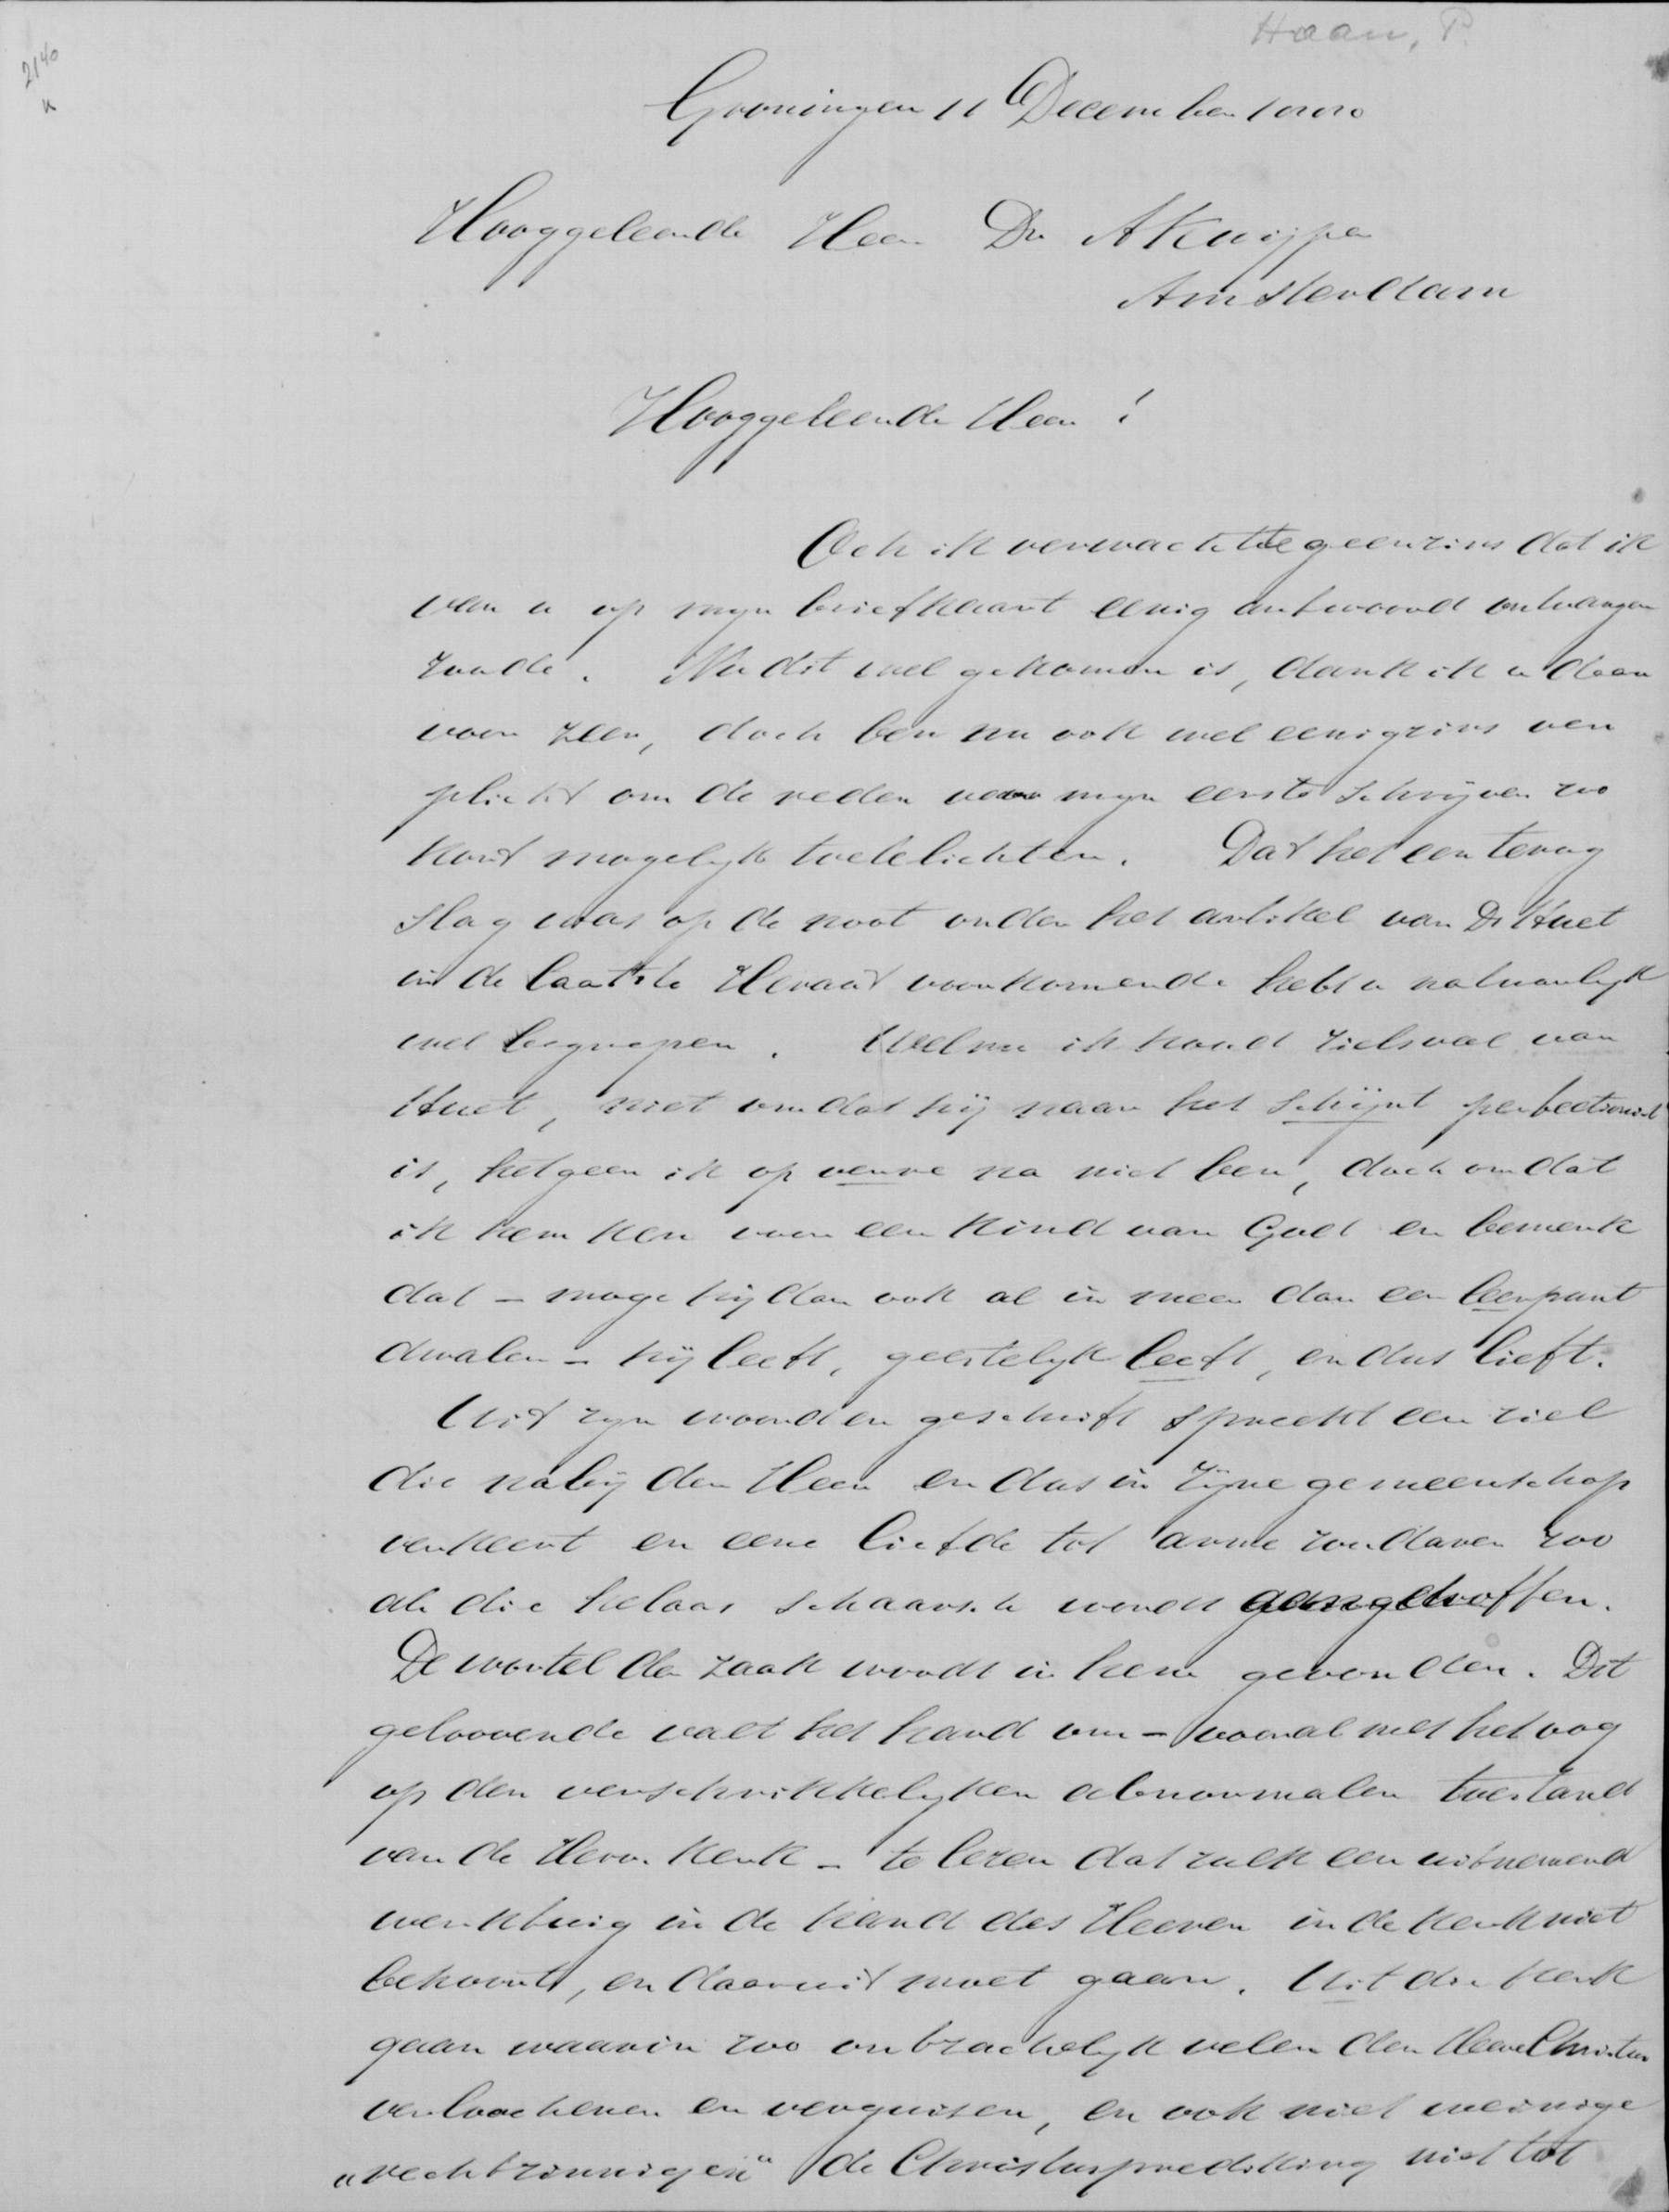 Haan, P.
2140
K
Groningen 11 December 1880
Hooggeleerde Heer Dr A Kuijper
Amsterdam
Hooggeleerde Heer!
Och ik verwachtte geenzins dat ik
van u op mijn briefkaart eenig antwoord ontvangen
zoude. Nu dit wel gekomen is, dank ik u daar
voor zeer, doch ben nu ook wel eenigzins ver
plicht om de reden van mijn eerste schrijven zoo
kort mogelyk toetelichten. Dat het een terug
slag was op de noot onder het artikel van Ds Huet
in de laatste Heraut voorkomende hebt u natuurlyk
wel begrepen. Welnu ik houd zielsveel van
Huet, niet omdat hij naar het schijnt perfectionist
is, hetgeen ik op verre na niet ben, doch omdat
ik hem ken voor een kind van God en bemerk
dat - moge hij dan ook al in meer dan een leerpunt
dwalen - hij leeft, geestelyk leeft, en dus lieft.
Uit zyn woord en geschrift spreekt een ziel
die nabij den Heer en dus in Zijne gemeenschap
verkeert en eene liefde tot arme zondaren zoo
als die helaas schaarsch wordt aangetroffen.
De wortel der zaak wordt in hem gevonden. Dit
geloovende valt het hard om - vooral met het oog
op den verschrikkelyken abnormalen toestand
van de Herv. Kerk - te lezen dat zulk een uitnemend
werktuig in de hand des Heeren in de kerk niet
behoort, en daaruit moet gaan. Uit die kerk
gaan waarin zoo ontzachelyk velen den Heere Christus
verloochenen en verguizen, en ook niet weinige
"rechtzinnigen" de Christusprediking niet tot